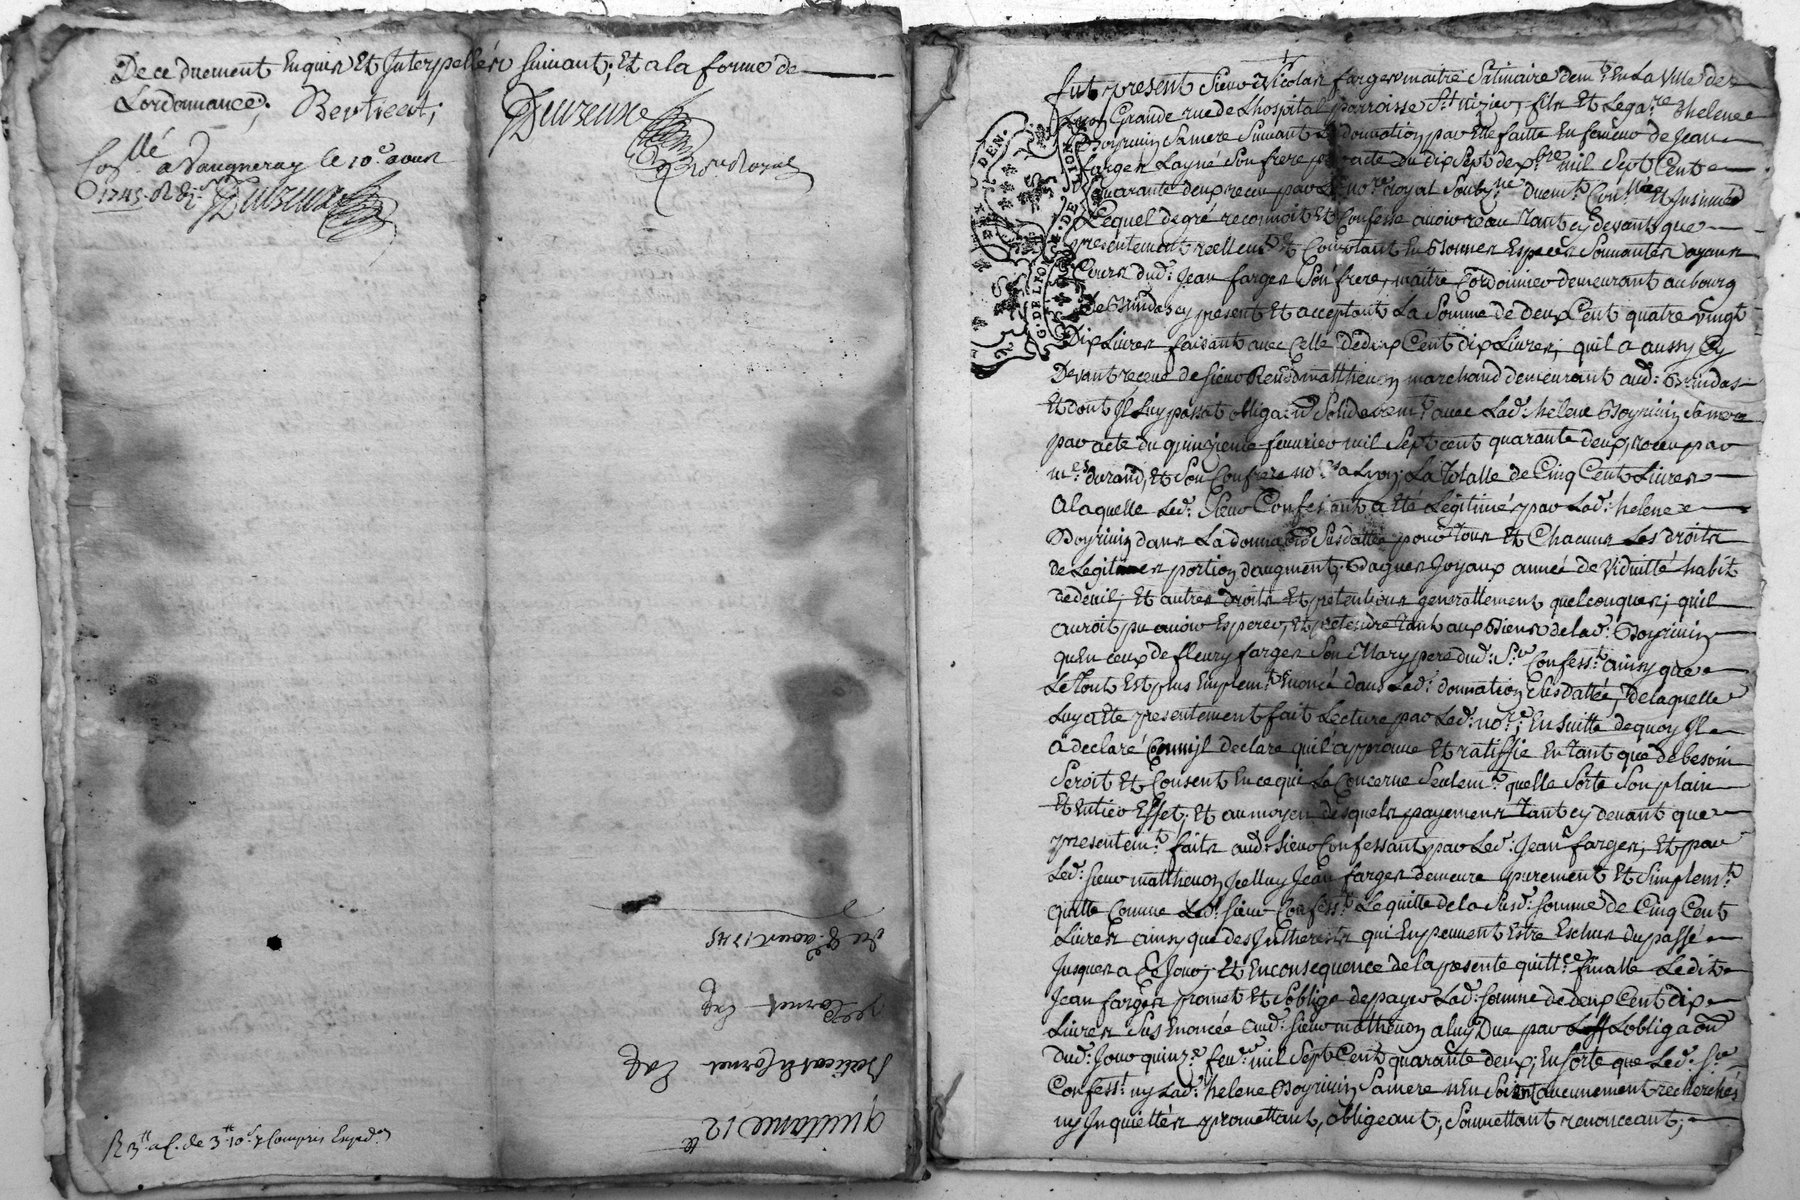 De ce duement Enquis Et Interpellés suivant, Et a la forme de
Lordonnance; Berlicat;
Collé a Vaugneray le 10e aoust
1745.
not Royal
quittance 12tt
Berlicat & Cornet
Cornet
Du 8e aoust 1745
R 3tt a C. de 3tt 10s Compris Exped.on
G. DE LYON
Fut present Sieur Nicolas farges maitre Satinaire demt En La Ville de
Lyon Grande rue de Lhospital parroisse St nizier, fils Et Lega.re helene
Boyrivin Sa mere Suivant La donnation par Elle faitte En faveur de Jean
farges Layné Son frere par acte du dix Sept Xbre mil Sept Cent
Quarante deux receu par Le no.re royal Soubz.né duemt Con.llé Et Insinué
Lequel de gré reconnoit Et Confesse avoir receu Tant cy devant que
presentement reellemt Et Comptant En Bonnes Especes Sonnantes ayant
Cours dud: Jean farges Son frere, maitre Cordonnier demeurant au bourg
de Brindas cy present Et acceptant La Somme de deux Cent quatre vingt
Dix Livres faisant avec Celle de deux Cent dix Livres; quil a aussy Cy
Devant receue de Sieur matthevon marchand demeurant aud: Brindas
Et dont Il Luy passat obliga.on Solidairemt avec Lad: helene Boyrivin Sa mere
par acte du quinzieme feuvrier mil Sept cent quarante deux, receu par
mes durand, Et Son Confrere nores a Lyon; La Totalle de Cinq Cent Livres
A laquelle Led: Sieur Confessant a Eté Légitimé par Lad: helene
Boyrivin dans La donnaon Susdattée pour tous Et Chacuns Les droits
de Legitimes portion daugment, Bagues Joyaux année de Viduitté habit
de deuil; Et autres droits Et pretentions generallement quelconques; quil
auroit pu avoir Esperer, Et pretendre Tant aux Biens de lad: Boyrivin
quEn ceux de fleury farges Son Mary pere dud: Sr Confesst ainsy que
Le Tout Est plus Emplemt Enoncé dans Lad: donnation Susdattée, de laquelle
Luy a Eté presentement fait Lecture par Led: nore; En Suitte de quoy Il
a declaré Comm'jl declare quil approuve Et ratiffie En Tant que de besoin
Seroit Et Consent En ce qui Le Concerne Seulemt quelle Sorte Son plain
Et Entier Effet; Et au moyen desquels payemens Tant cy devant que
presentemt faits aud: Sieur Confessant par Led: Jean farges; Et par
Led: Sieur matthevon Icelluy Jean farges demeure purement Et Simplemt
quitte Comme Led: Sieur Confesst Le quitte de la Susd: Somme de Cinq Cent
Livres ainsy que des Intherests qui En peuvent Estre Eschus du passé
Jusques a Ce Jour; Et En consequence de la presente quittce finalle Le dit
Jean farges promet Et Soblige de payer Lad: Somme de deux Cent dix
Livres Sus Enoncée aud: Sieur mathevon a luy Due par Lobligaon
Dud: Jour quinze feuvr mil Sept Cent quarante deux; En Sorte que Led: Sr
Confesst ny Lad: helene Boyrivin Sa mere nEn Soient aucunement recherchés
ny Inquiettés promettant, obligeant, Soumettant renonceant;